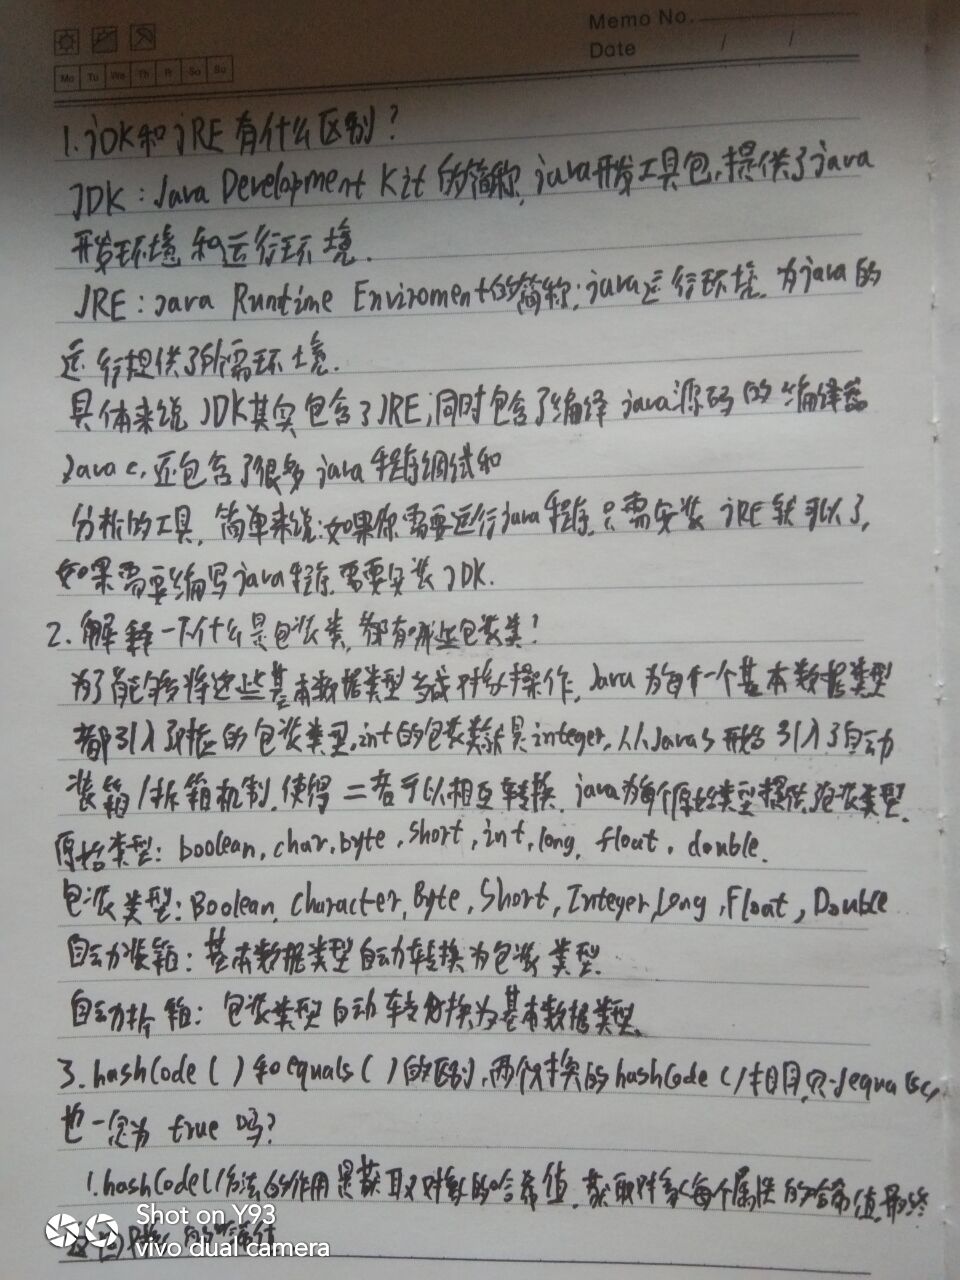 Memo No.
Date / /
Mo Tu We Th Fr Sa Su
1.jDK和jRE有什么区别?
JDK:Java Development Kit的简称,java开发工具包,提供了java
开发环境和运行环境.
JRE:Java Runtime Enviroment的简称,java运行环境,为java的
运行提供了所需环境.
具体来说JDK其实包含了JRE,同时包含了编译java源码的编译器
Javac,还包含了很多java程序调试和
分析的工具,简单来说:如果你需要运行java程序,只需安装jRE就可以了,
如果需要编写java程序,需要安装JDK.
2.解释一下什么是包装类,都有哪些包装类?
为了能够将这些基本数据类型当成对象操作,Java为每个一个基本数据类型
都引入了对应的包装类型,int的包装类就是integer,从Java5开始引入了自动
装箱/拆箱机制,使得二者可以相互转换,java为每个原始类型提供了包装类型.
原始类型:boolean,char,byte,short,int,long,float,double.
包装类型:Boolean,Character,Byte,Short,Integer,Long,Float,Double
自动装箱:基本数据类型自动转换为包装类型.
自动拆箱:包装类型自动转换为基本数据类型.
3.hashCode()和equals()的区别,两个对象的hashCode()相同,
也一定为true吗?
1.hashCode()方法的作用是获取对象的哈希值,获取对象每个属性的哈希值,最终
Shot on Y93
vivo dual camera